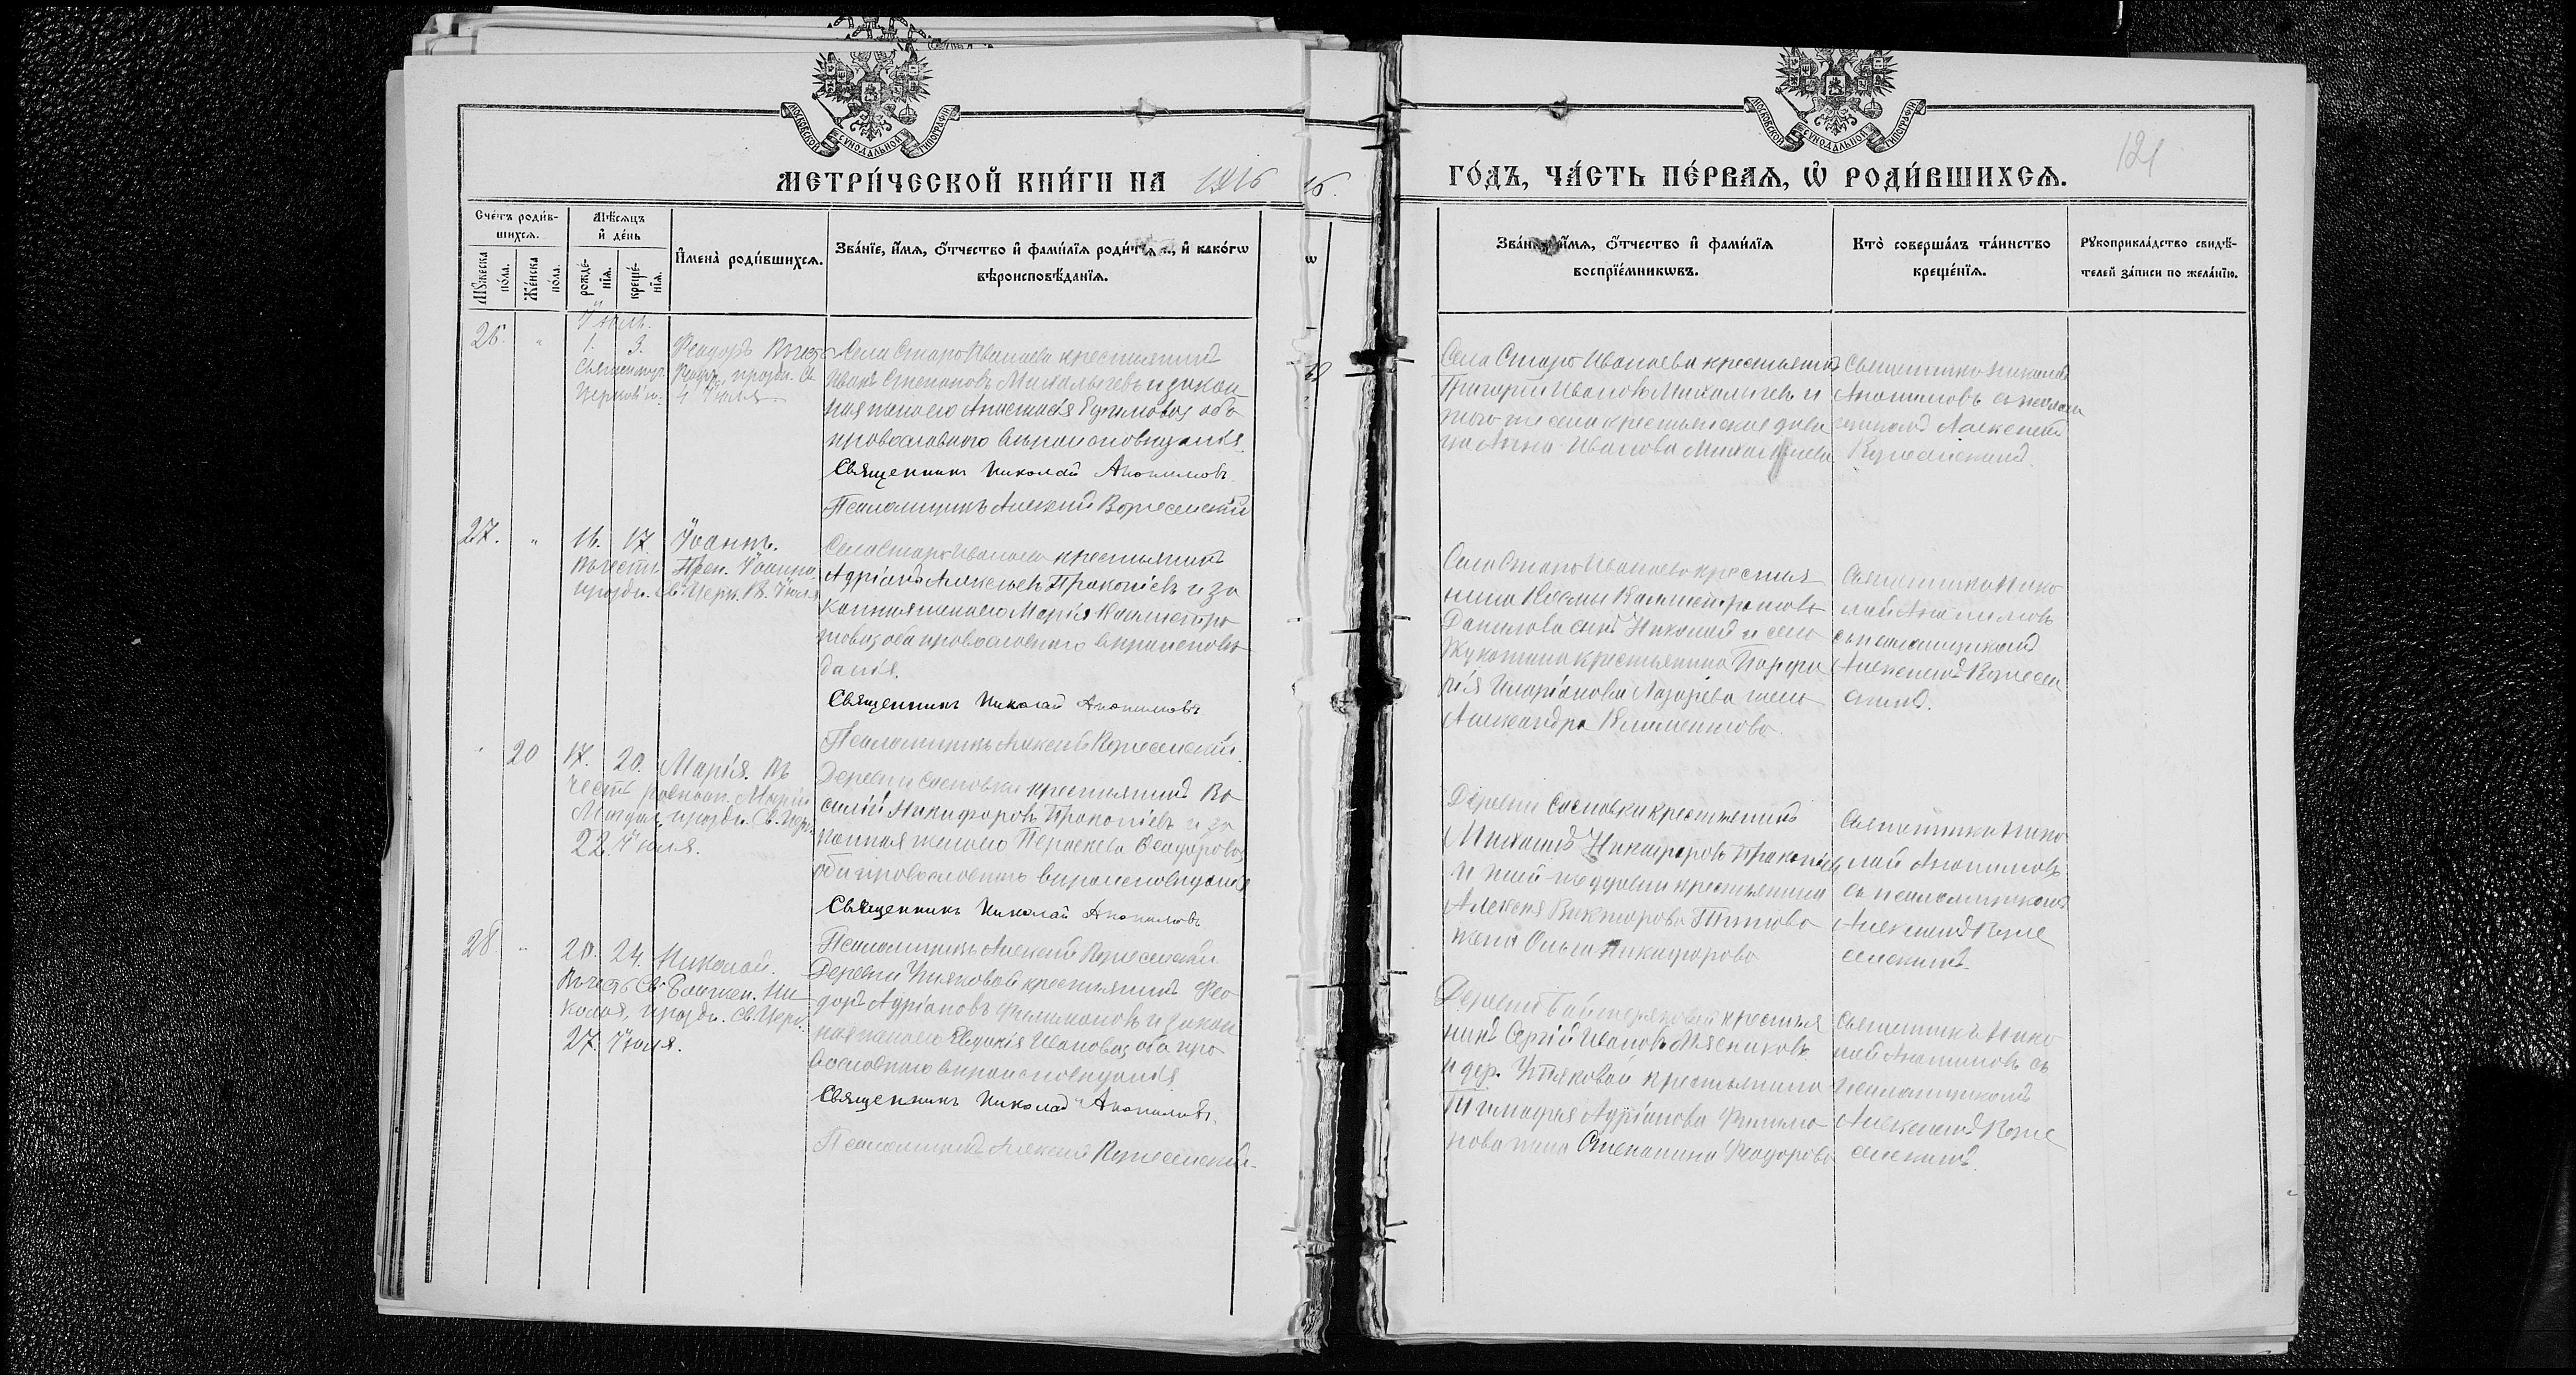 МЕТРИ́ЧЕСКОЙ КНИ́ГИ НА 1916
ГО́ДЪ, ЧА́СТЬ ПЕ́РВАѦ, Ѡ҆ РОДИ́ВШИХСѦ.
121
Сче́тъ роди́в-
шихсѧ.
Мꙋ́жеска по́ла.
Же́нска по́ла.
Мѣ́сѧцъ
и҆ де́нь
рожде́-
нїѧ.
креще́-
нїѧ.
И҆мена̀ роди́вшихсѧ.
Зва́нїе, и҆́мѧ, ѻ҆́тчество и҆ фами́лїѧ роди́т, и҆ како́гѡ
вѣроисповѣ́данїѧ.
и҆́мѧ, ѻ҆́тчество и҆ фами́лїѧ
воспрїе́мникѡвъ.
Кто̀ соверша́лъ та́инство
креще́нїѧ.
Рꙋкоприкла́дство свидѣ́-
телей за́писи по жела́нїю.
Іюль.
26. " 1. 3. Ѳеодоръ Въчесть
Священмуч.
4 Іюля
Села СтароИванаева крестьянинъ
Иванъ Степановъ Михалычевъ и закон
ная жена его Анастасія Ефимова, оба
православнаго вѣроисповѣданія.
Священникъ Николай Анатимовъ
Псаломщикъ Алексій Вознесенскій
Села Старо Иванаева крестьянинъ
Григорій Ивановъ Михалычевъ и
того же села крестьянская деви
ца Анна Иванова
Священникъ Николай
Алексіемъ
Вознесенскимъ.
27. " 16. 17. Іоаннъ.
Въчесть Преп. Іоанна
праздн. Св. Церк. 18. Іюля
Села СтароИванаева крестьянинъ
Адріанъ Алексѣевъ Прокопіевъ и за
конная жена его Марія Каллистра
това, оба православнаго вѣроисповѣ
данія.
Священникъ Николай Анатимовъ
Псаломщикъ Алексій Вознесенскій.
Села СтароИванаева крестья
нина Космы Каллистратова
Данилова сынъ Николай и села
крестьянина Порфи
рія Иларіонова Лазарева жена
Александра Климентова.
Священникъ Нико
лай Анатимовъ
съ псаломщикомъ
Алексіемъ Вознесен
скимъ.
" 20 17. 20. Марія. Въ
честь равноап. Маріи
Магдал. праздн. Св. Церк.
22. Іюля.
Деревни Сосновки крестьянинъ Ва
силій Никифоровъ Прокопіевъ и за
конная жена его Параскева Ѳеодорова,
оба православнаго вѣроисповѣданія
Священникъ Николай Анатимовъ
Псаломщикъ Алексій Вознесенскій
Деревни Сосновки крестьянинъ
Михаилъ Никифоровъ Прокопіевъ
и той же деревни крестьянина
Алексія Викторова Титова
жена Ольга Никифорова
Священникъ Нико
лай Анатимовъ
съ псаломщикомъ
Алексіемъ Возне
сенскимъ.
28 " 20. 24. Николай.
Въчесть Св. Блажен. Ни
колая, праздн. Св. Церк.
27. Іюля.
Деревни крестьянинъ Ѳео
доръ Адріановъ Филимоновъ и закон
ная жена его Евдокія Иванова, оба пра
вославнаго вѣроисповѣданія
Священникъ Николай Анатимовъ.
Псаломщикъ Алексій Вознесенскій.
Деревни крестья
нинъ Сергій Ивановъ Мясниковъ
и дер. крестьянина
Тимофея Адріанова Филимо
нова жена Степанида Ѳеодорова
Священникъ Нико
лай Анатимовъ съ
псаломщикомъ
Алексіемъ Возне
сенскимъ.